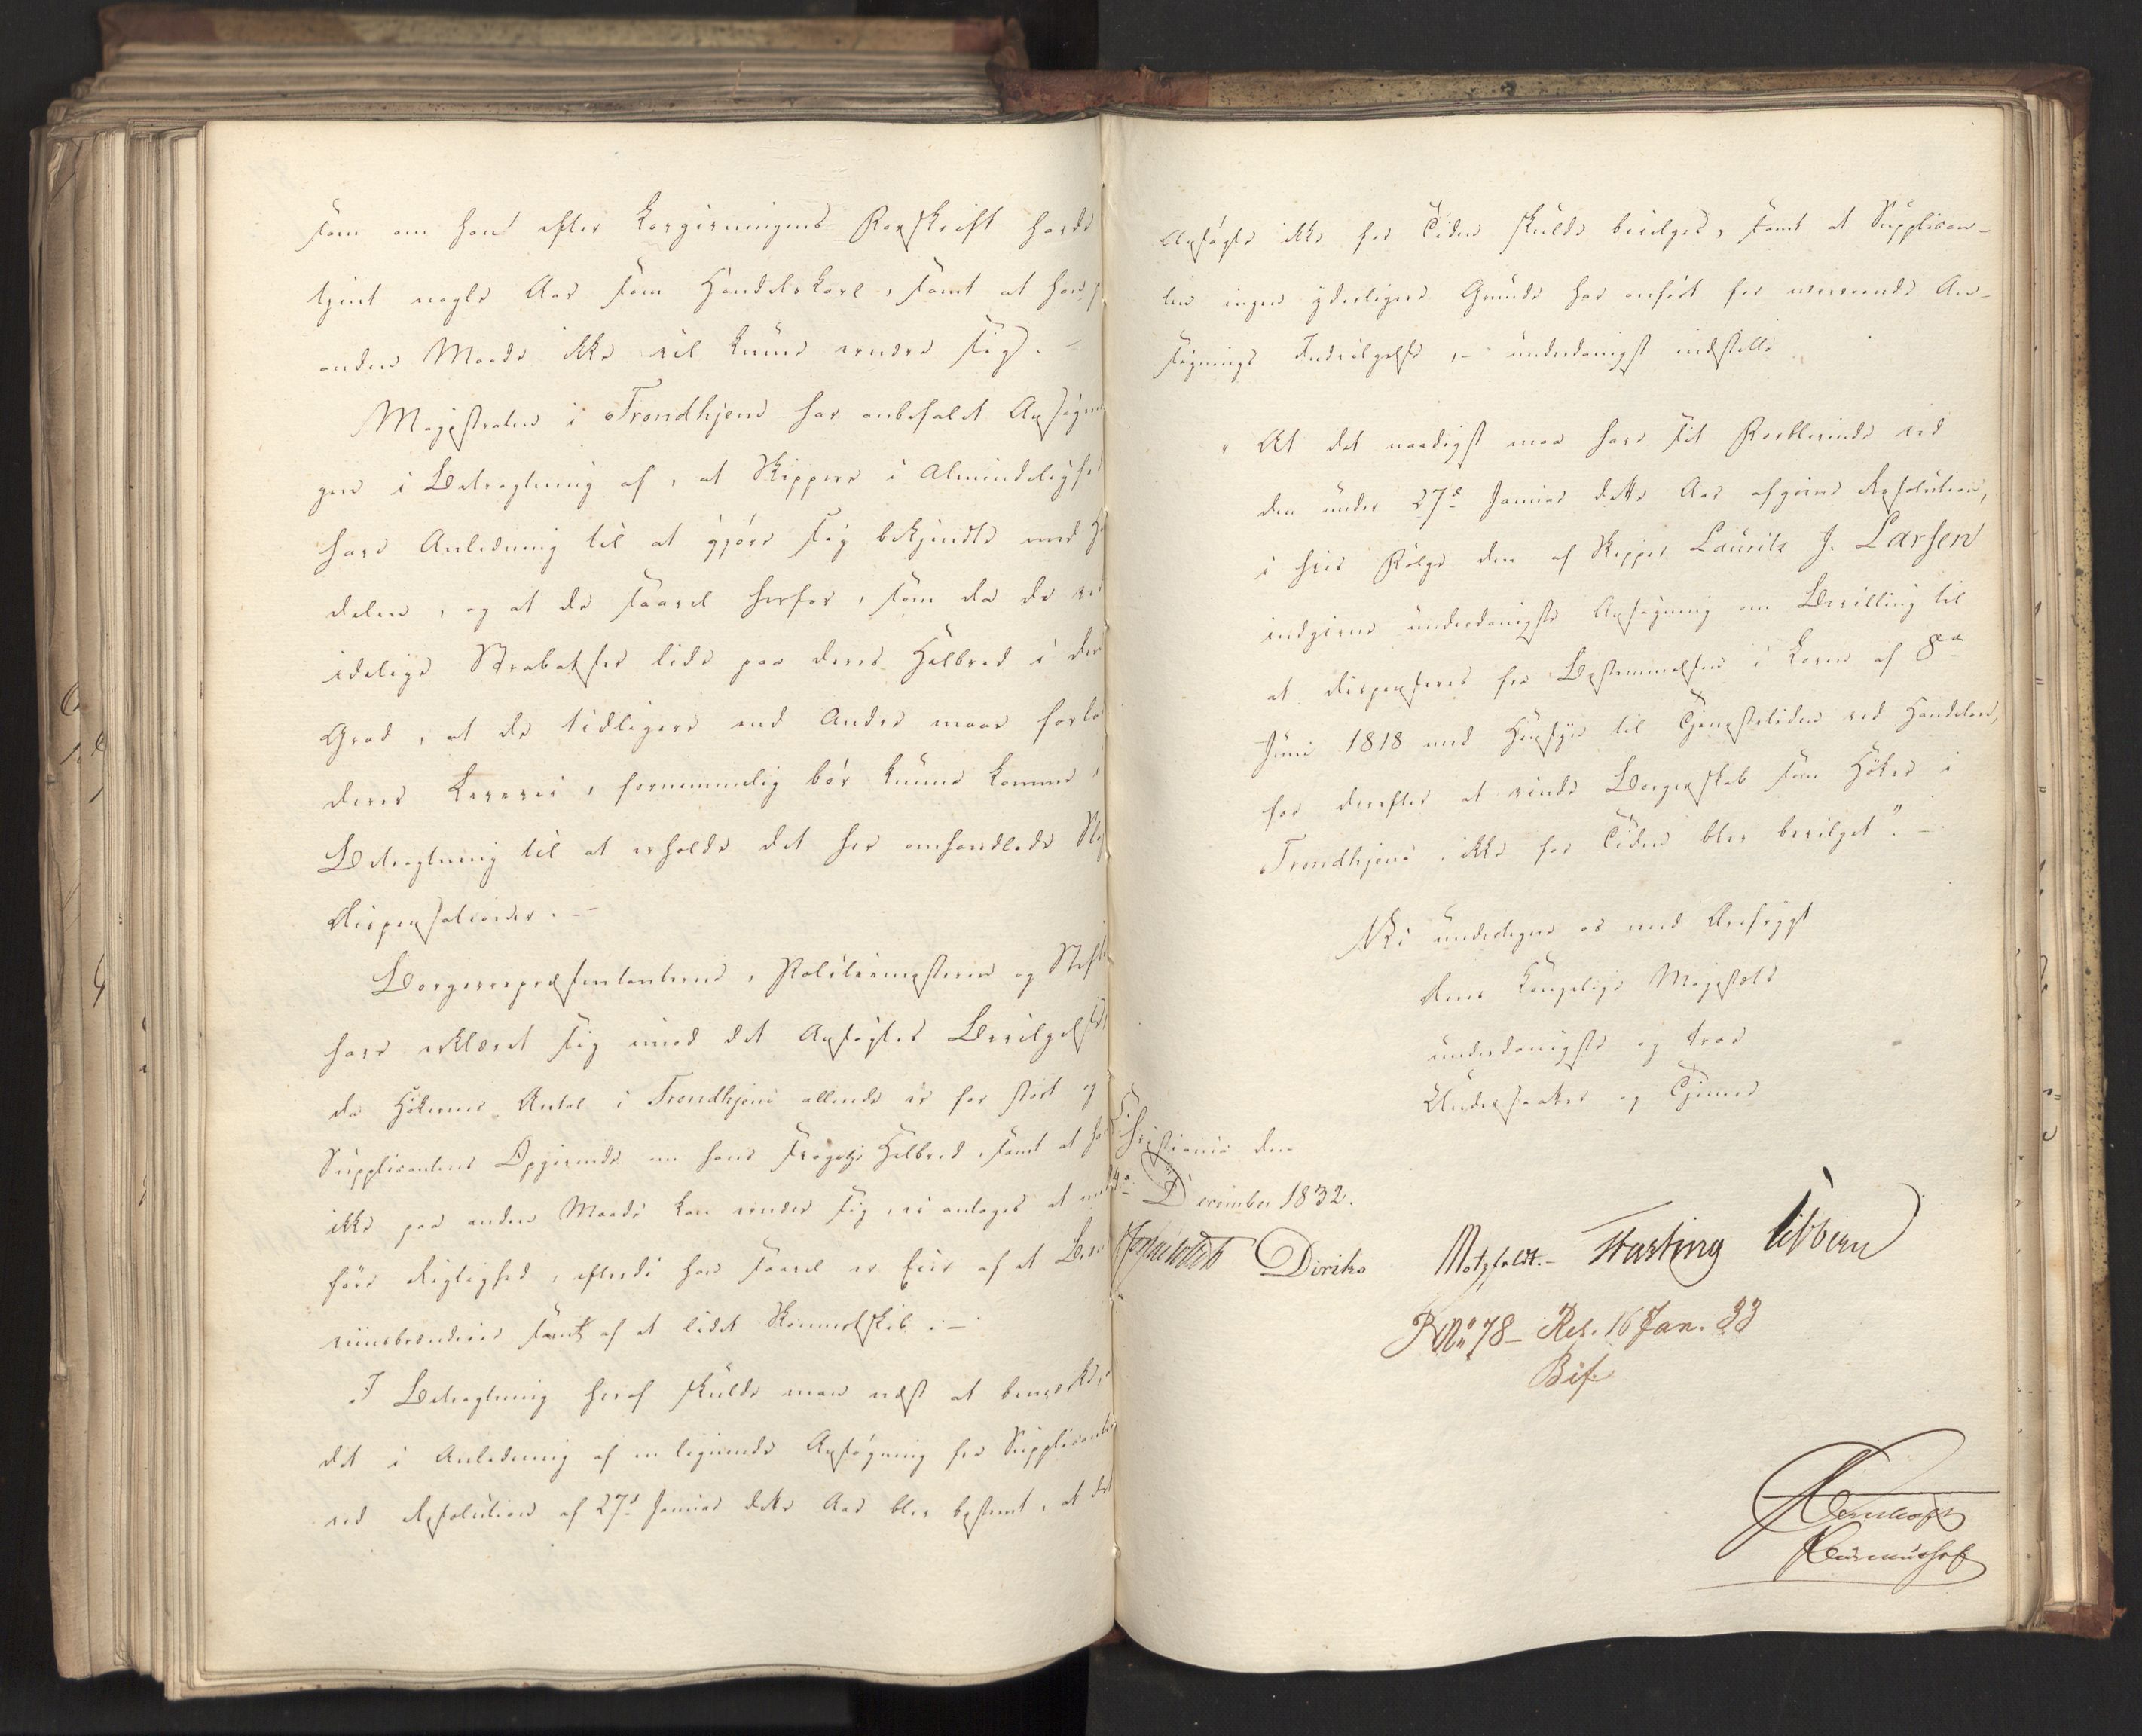 som om han efter Lovgivningens Forskrift havde
tjent nogle Aar som Handelskarl, samt at han p
anden Maade ikke vil kunne ernære sig.
Magistraten i Trondhjem har anbefalet Ansøgnin
gen i Betragtning af, at Skippere i Almindelighed
have Anledning til at gjøre sig bekjendte med Ha
delen, og at de saavel herfor, som da de ved
idelige Strabatser lide paa deres Helbred i den
Grad, at de tidligere end Andre maae forla
deres Levevei, fornemmelig bør kunne komme i
Betragtning til at erholde det her omhandlede Sl
Dispensationer. -
Borgerrepræsentanterne, Politiemesteren og Stift
have erklæret sig imod det Ansøgtes Bevilgelse
da Høkernes Antal i Trondhjem allerede er for stort og
Supplicantens Opgivende om hans svagelige Helbred, samt at han
ikke paa anden Maade kan ernære sig, ei antages at med
føre Rigtighed, efterdi han saavel er Eier af et Bræn
viinsbrænderie samt af et lidet Rømmelskib. -
I Betragtning heraf skulde man næst at bemærke,
det i Anledning af en lignende Ansøgning fra Supplicanten
ved Resolution af 27de Januar dette Aar blev bestemt, at det
Ansøgte ikke for Tiden skulde bevilges, samt at Supplican-
ten ingen yderligere Grunde har anført for nærværende An-
søgnings Indvilgelse, - underdanigst indstille
"At det naadigst maa have sit Forblivende ved
den under 27de Januar dette Aar afgivne Resolution,
i hvis Følge den af Skipper Lauritz J. Larsen
indgivne underdanigste Ansøgning om Bevilling til
at dispenseres fra Bestemmelsen i Loven af 8de
Juni 1818 med Hensyn til Tjenestetiden ved Handelen,
for derefter at vinde Borgerskab som Høker i
Trondhjem, ikke for Tiden blev bevilget". -
Vi undertegne os med Ærefrygt
Deres Kongelige Majestæts
underdanigste og troe
Undersaatter og Tjenere
Christiania den
December 1832.
Diriks Motzfeldt. - Fasting Vibbern
No 78 - Res. 16 Jan. 33
Bif.